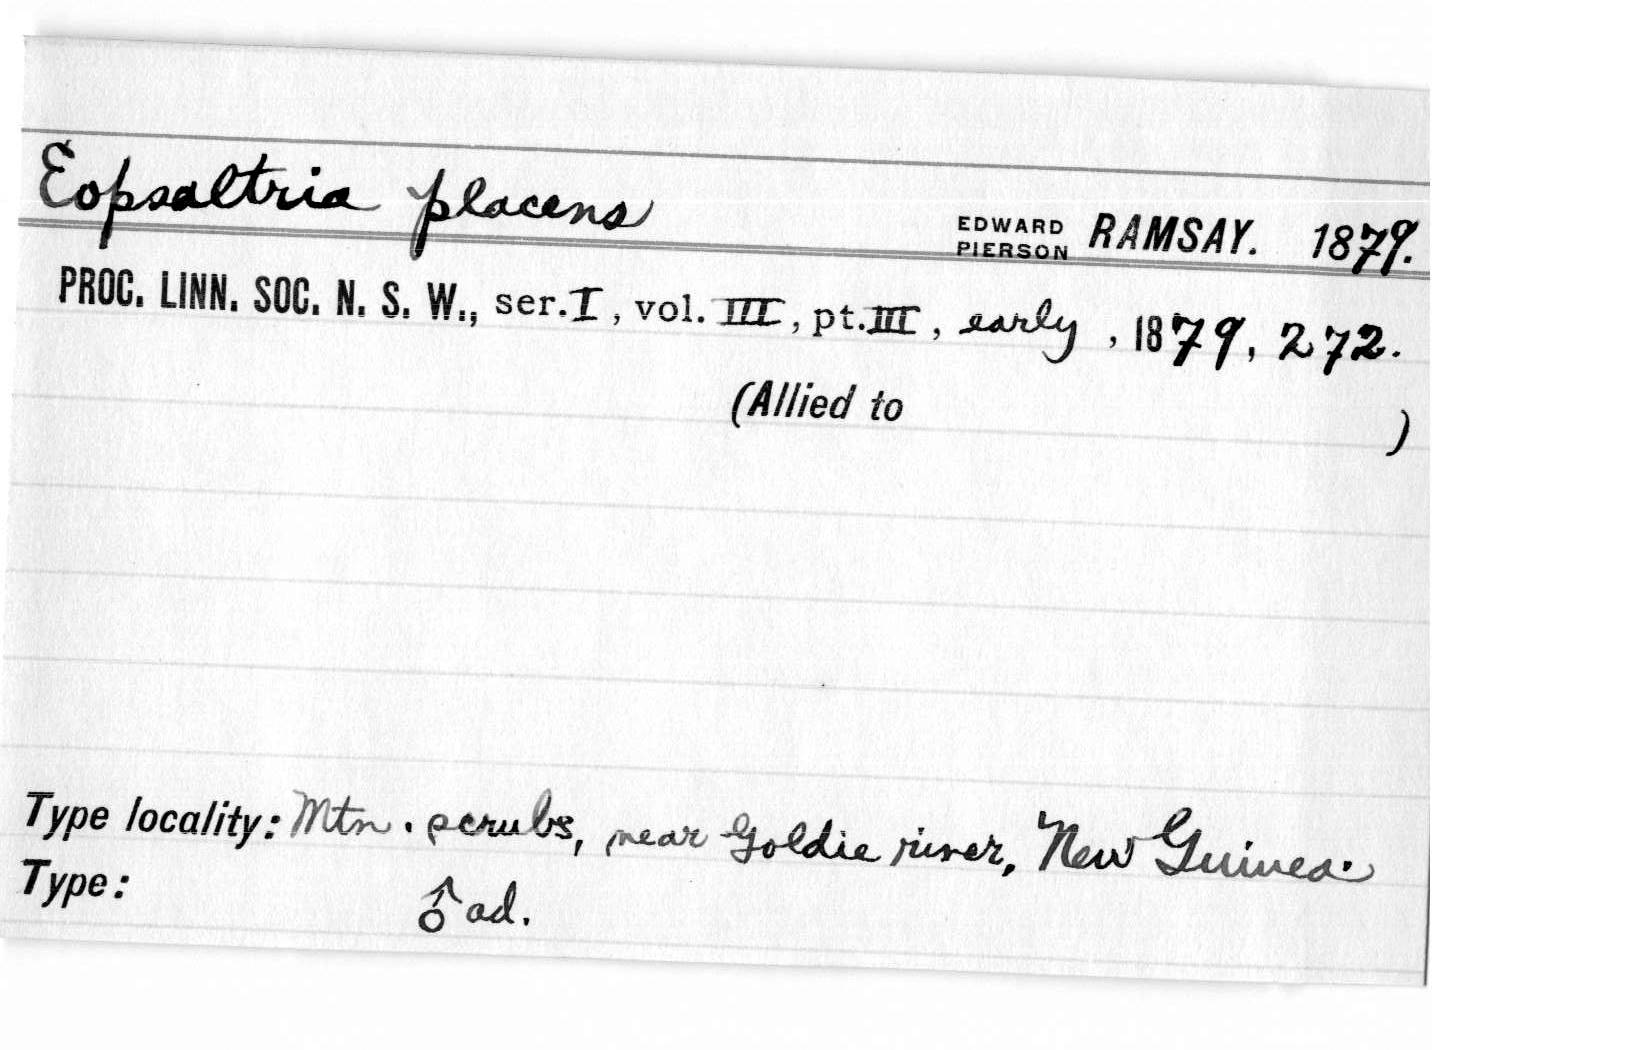 Eopsaltria placens EDWARD PIERSON RAMSAY. 1879.
PROC. LINN. SOC. N. S. W., ser. I, vol. III, pt. III, early, 1879, 272.
(Allied to )
Type locality: Mtn. scrubs, near Goldie river, New Guinea.
Type: ♂ ad.